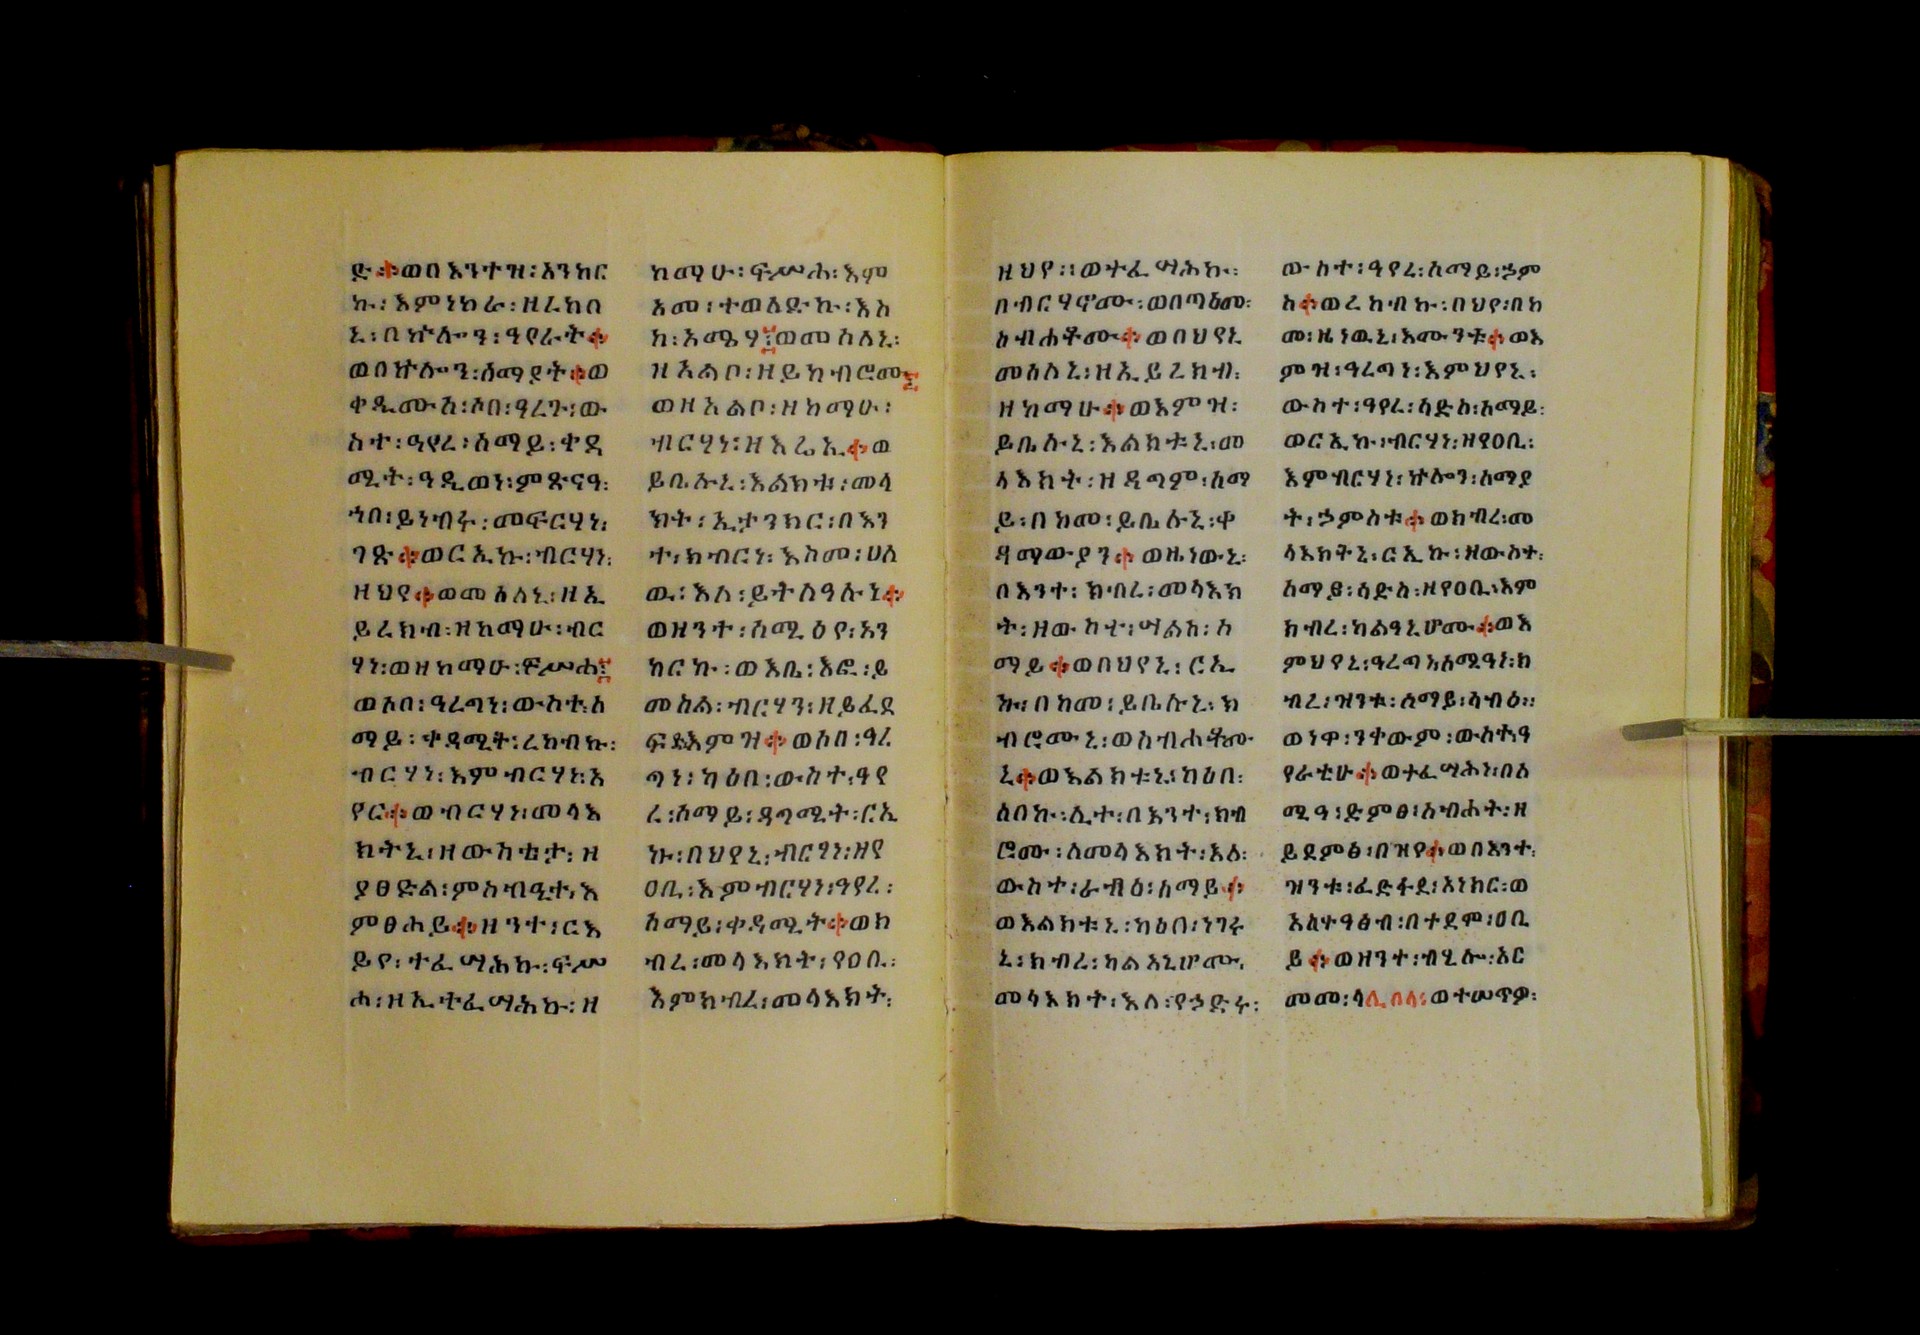 ድ፨ወበእንተዝ፡አንከር
ኩ፡እምነከራ፡ዘረከበ
ኒ፡በኵሎን፡ዓየራት፨
ወበኵሎን፡ሰማያት፨ወ
ቀዲሙሰ፡ሶበ፡ዓረጉ፡ው
ስተ፡ዓየረ፡ሰማይ፡ቀዳ
ሚት፡ዓዲወነ፡ምጽናዓ፡
ኀበ፡ይነብሩ፡መፍርሃነ፡
ገጽ፨ወርኢኩ፡ብርሃነ፡
ዘህየ፨ወመሰለኒ፡ዘኢ
ይረክብ፡ዘከማሁ፡ብር
ሃነ፡ወዘከማሁ፡ፍሥሐ፨
ወሶበ፡ዓረጣነ፡ውስተ፡ሰ
ማይ፡ቀዳሚት፡ረከብኩ፡
ብርሃነ፡እምብርሃነ፡አ
የር፨ወብርሃነ፡መላእ
ክትኒ፡ዘውስቴታ፡ዘ
ያፀድል፡ምስብዒተ፡እ
ምፀሐይ፨ዘንተ፡ርእ
ይየ፡ተፈሣሕኩ፡ፍሥ
ሐ፡ዘኢተፈሣሕኩ፡ዘ
ከማሁ፡ፍሥሐ፡እም
አመ፡ተወለድኩ፡እስ
ከ፡አሜሃ፨ወመሰለኒ፡
ዘአልቦ፡ዘይከብሮሙ፨
ወዘአልቦ፡ዘከማሁ፡
ብርሃነ፡ዘእሬኢ፨ወ
ይቤሉኒ፡እልክቱ፡መላ
ክት፡ኢታንክር፡በእን
ተ፡ክብርነ፡እስመ፡ሀለ
ዉ፡እለ፡ይትሰዓሉኒ፨
ወዘንተ፡ሰሚዕየ፡አን
ከርኩ፡ወእቤ፡እፎ፡ይ
መስል፡ብርሃን፡ዘይፈደ
ፍድእምዝ፨ወሶበ፡ዓረ
ጣነ፡ካዕበ፡ውስተ፡ዓየ
ረ፡ሰማይ፡ዳጣሚት፡ርኢ
ኩ፡በህየኒ፡ብርሃነ፡ዘየ
ዐቢ፡እምብርሃነ፡ዓየረ፡
ሰማይ፡ቀዳሚት፨ወክ
ብረ፡መላእክት፡የዐቢ፡
እምክብረ፡መላእክት፡
ዘህየ፡፡ወተፈሣሕኩ፡
በብርሃኖሙ፡ወበጣዕሙ፡
ስብሐቶሙ፨ወበህየኒ
መሰለኒ፡ዘኢይረክብ፡
ዘከማሁ፨ወእምዝ፡
ይቤሉኒ፡እልክቱኒ፡መ
ላእክት፡ዘዳጣም፡ሰማ
ይ፡በከመ፡ይቤሉኒ፡ቀ
ዳማውያን፨ወዜነውኒ፡
በእንተ፡ክብረ፡መላእክ
ት፡ዘውስተ፡ሣልስ፡ሰ
ማይ፨ወበህየኒ፡ርኢ
ኩ፡በከመ፡ይቤሉኒ፡ክ
ብሮሙኒ፡ወስብሐቶሙ
ኒ፨ወእልክቱኒ፡ከዕበ፡
ሰበኩ፡ሊተ፡በእንተ፡ክብ
ሮሙ፡ለመላእክት፡እለ፡
ውስተ፡ራብዕ፡ሰማይ፨
ወእልክቱኒ፡ካዕበ፡ነገሩ
ኒ፡ክብረ፡ካልአኒሆሙ፡
መላእክት፡እለ፡የኃድሩ፡
ውስተ፡ዓየረ፡ሰማይ፡ኃም
ስ፨ወረከብኩ፡በህየ፡በከ
መ፡ዜነዉኒ፡እሙንቱ፨ወእ
ምዝ፡ዓረጣነ፡እምህየኒ፡
ውስተ፡ዓየረ፡ሳድስ፡ሰማይ፡
ወርኢኩ፡ብርሃነ፡ዘየዐቢ፡
እምብርሃነ፡ኵሎን፡ሰማያ
ት፡ኃምስቱ፨ወክብረ፡መ
ላእክትኒ፡ርኢኩ፡ዘውስተ፡
ሰማይ፡ሳድስ፡ዘየዐቢ፡እም
ክብረ፡ካልዓኒሆሙ፨ወእ
ምህየኒ፡ዓረጣነ፡አሚዓነ፡ክ
ብረ፡ዝንቱ፡ሰማይ፡ሳብዕ፡፡
ወነዋ፡ንቀውም፡ውስተ፡ዓ
የራቲሁ፨ወተፈሣሕነ፡በሰ
ሚዓ፡ድምፀ፡ስብሐት፡ዘ
ይደምፅ፡በዝየ፨ወበእንተ፡
ዝንቱ፡ፈድፋደ፡አነከር፡ወ
እስተዓፅብ፡በተደሞ፡ዐቢ
ይ፨ወዘንተ፡ብሂሎ፡አር
መመ፡ላሊበላ፡ወተሠጥዎ፡